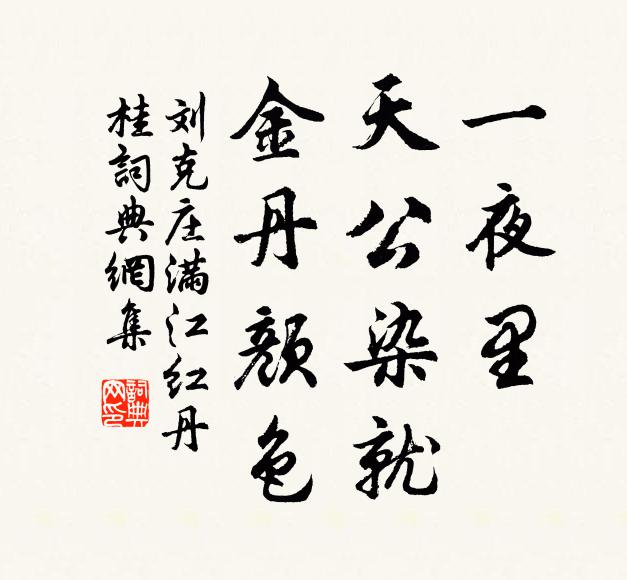 一夜里
天公染就
金丹颜色
刘克庄满江红丹
桂詞典網集
詞典网印